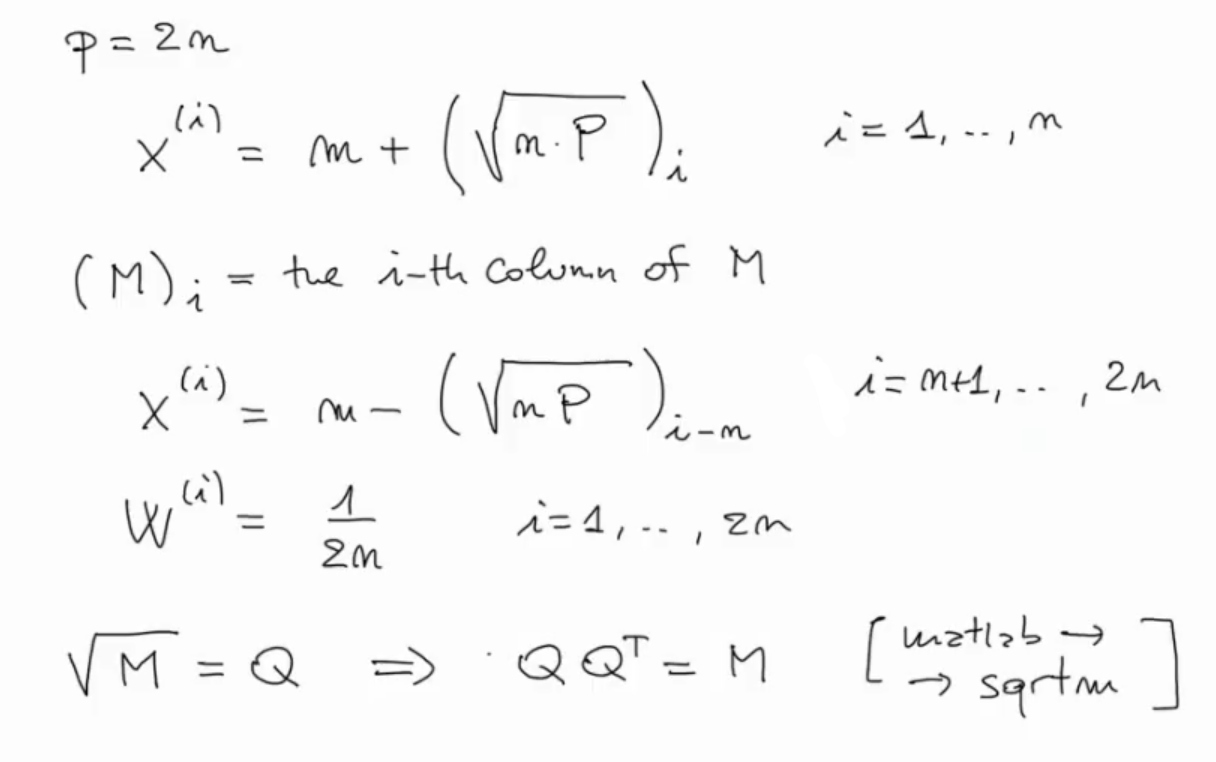 p = 2n
x^(i) = m + (√(n·P))_i    i = 1, .., n
(M)_i = the i-th column of M
x^(i) = m - (√(nP))_{i-n}    i = n+1, .. , 2n
W^(i) = 1/2n    i = 1, .. , 2n
√M = Q ⇒ · Q Q^T = M    [matlab →
→ sqrtm]